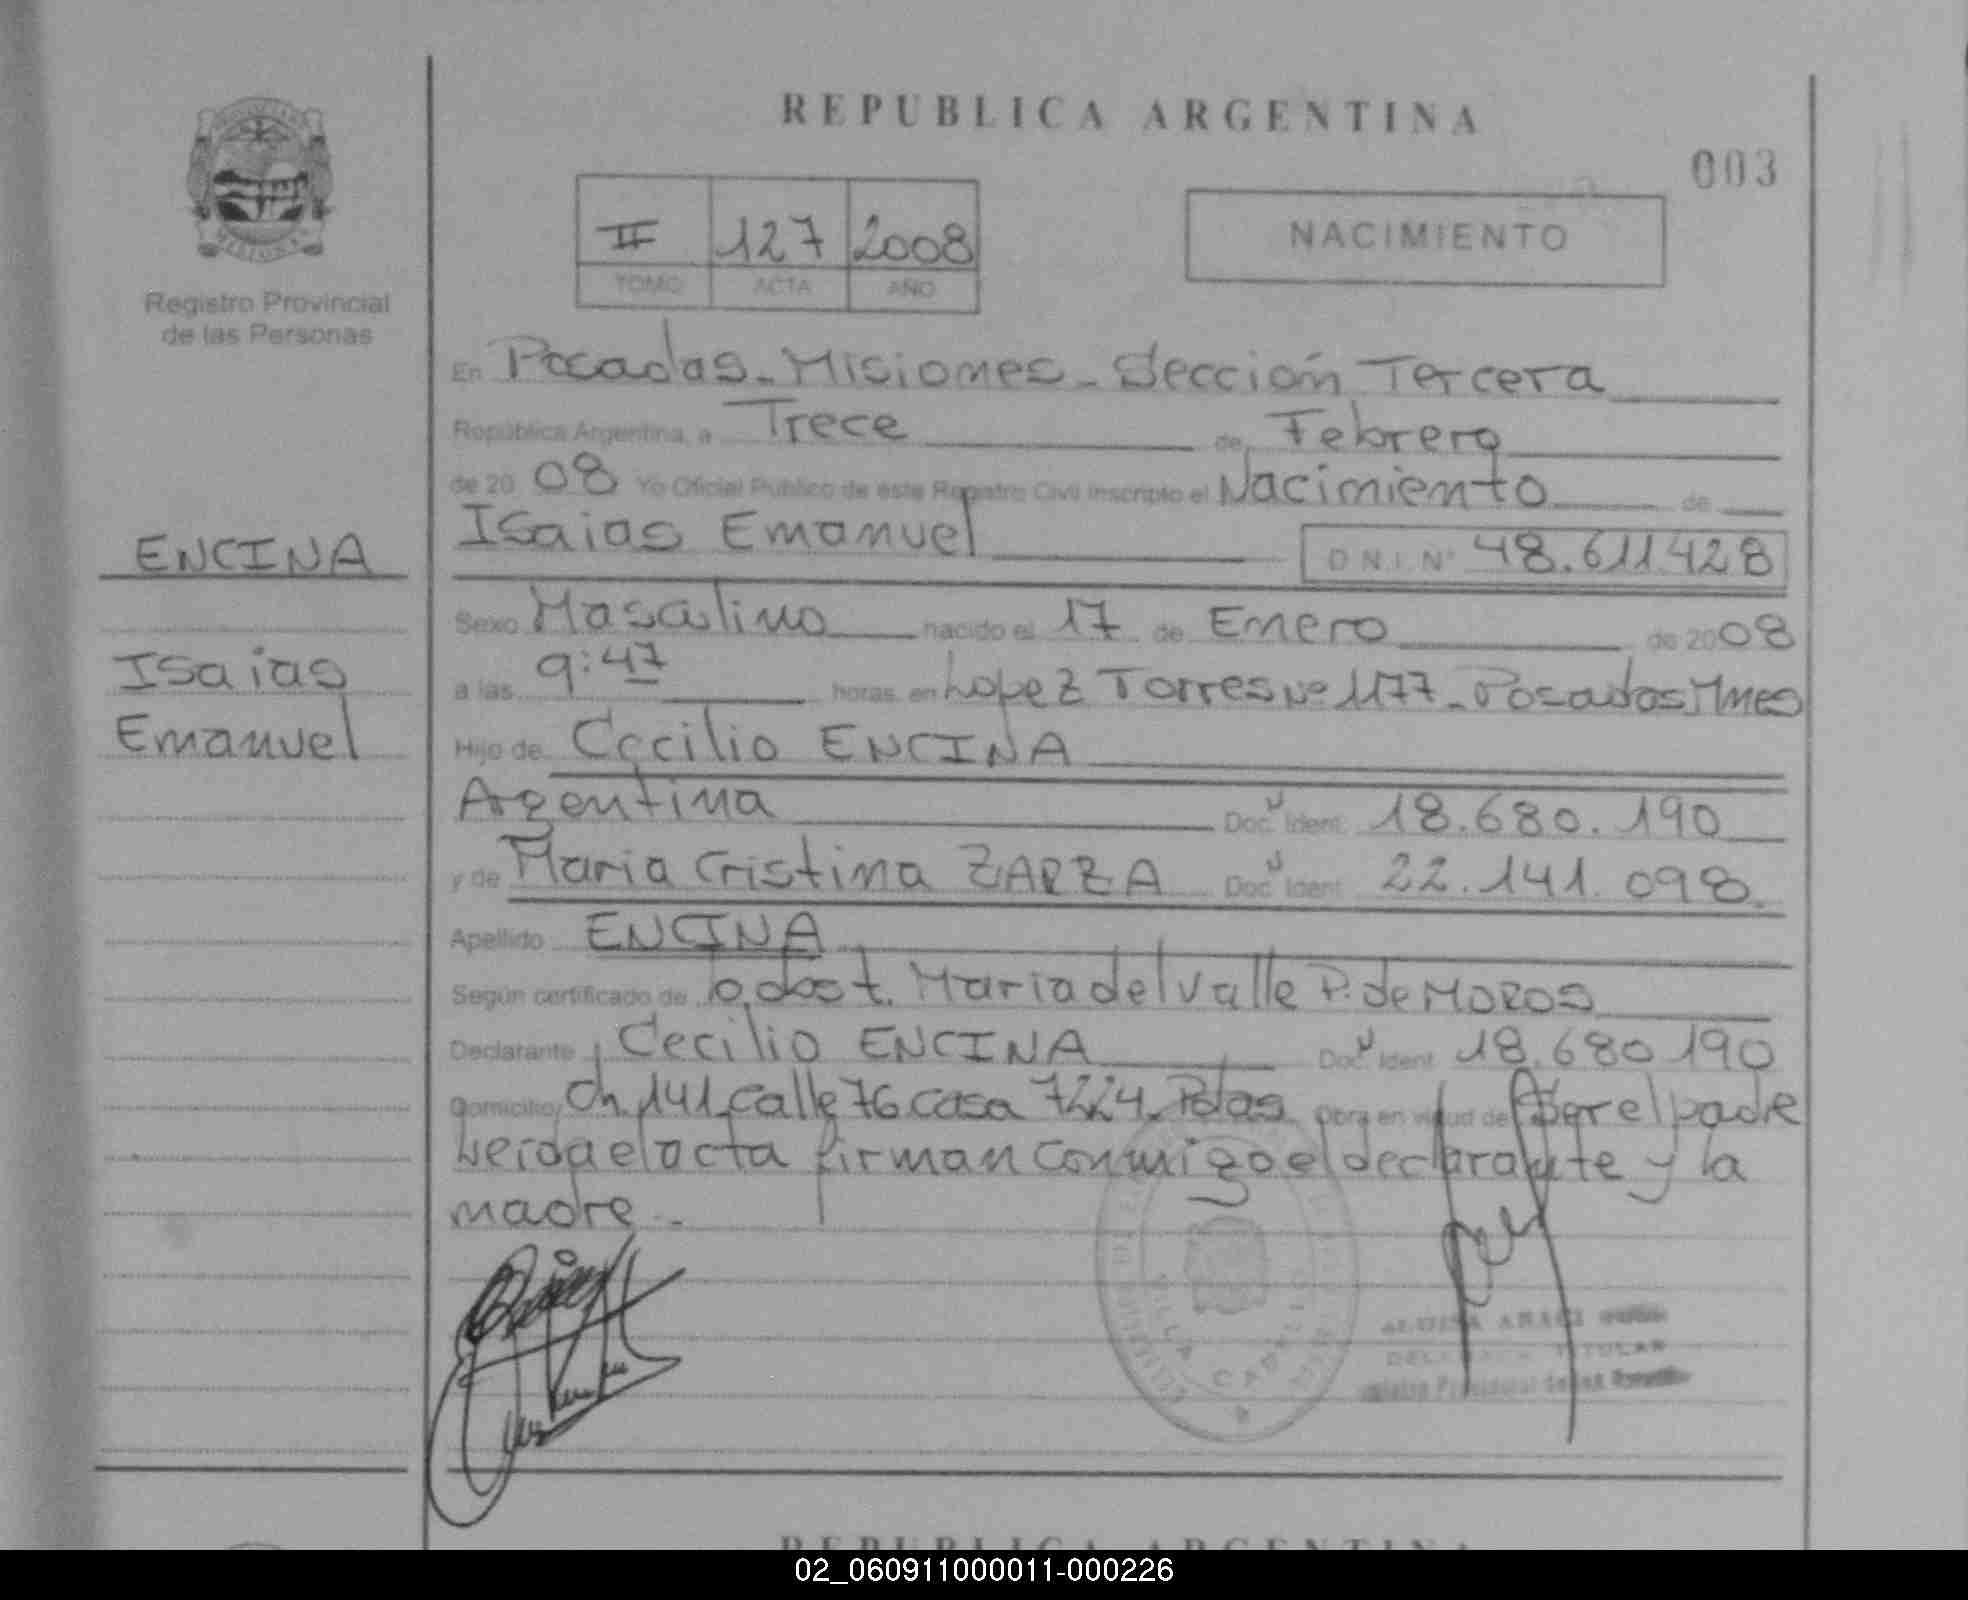 REPUBLICA ARGENTINA
003
II 127 2008
TOMO ACTA AÑO
NACIMIENTO
Registro Provincial
de las Personas
En Posadas - Misiones - Sección Tercera
República Argentina, a Trece de Febrero
de 20 08 Yo Oficial Publico de este Registro Civil inscripto el Nacimiento de
Isaias Emanuel D.N.I. Nº 48.611.428
ENCINA
Isaias
Emanuel
Sexo Masculino nacido el 17 de Enero de 2008
a las 9:47 horas. en Lopez Torres Nº 1177 - Posadas Mnes
Hijo de Cecilio ENCINA
Argentina Doc. Ident. 18.680.190
y de Maria Cristina ZARZA Doc. Ident. 22.141.098.
Apellido ENCINA
Según certificado de Odost. Maria del Valle P. de MOROS
Declarante Cecilio ENCINA Doc. Ident. 18.680.190
Domicilio Ch. 141 calle 76 casa 7224 - Pdas Obra en virtud de Ser el padre
Leida el acta firman conmigo el declarante y la
madre -
VILLA CABELLO
TITULAR
REPUBLICA ARGENTINA
02_060911000011-000226